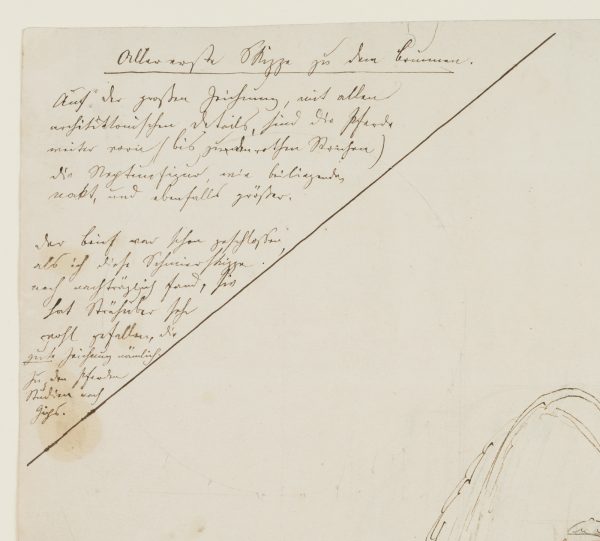 Aller erste Skizze zu dem Brunnen.
Auf der großen Zeichnung, mit allen
architektonischen Details, sind die Pferde
weiter vorn (bis zu den rothen Strichen)
die Neptunfigur, wie beiliegende,
nakt, und ebenfalls größer.
Der Brief war schon geschlossen,
als ich diese Schmierskizze
noch nachträglich fand, sie
hat Strähuber sehr
wohl gefallen, die
gute Zeichnung nämlich
zu den Pferden
Studien nach
Gyps.